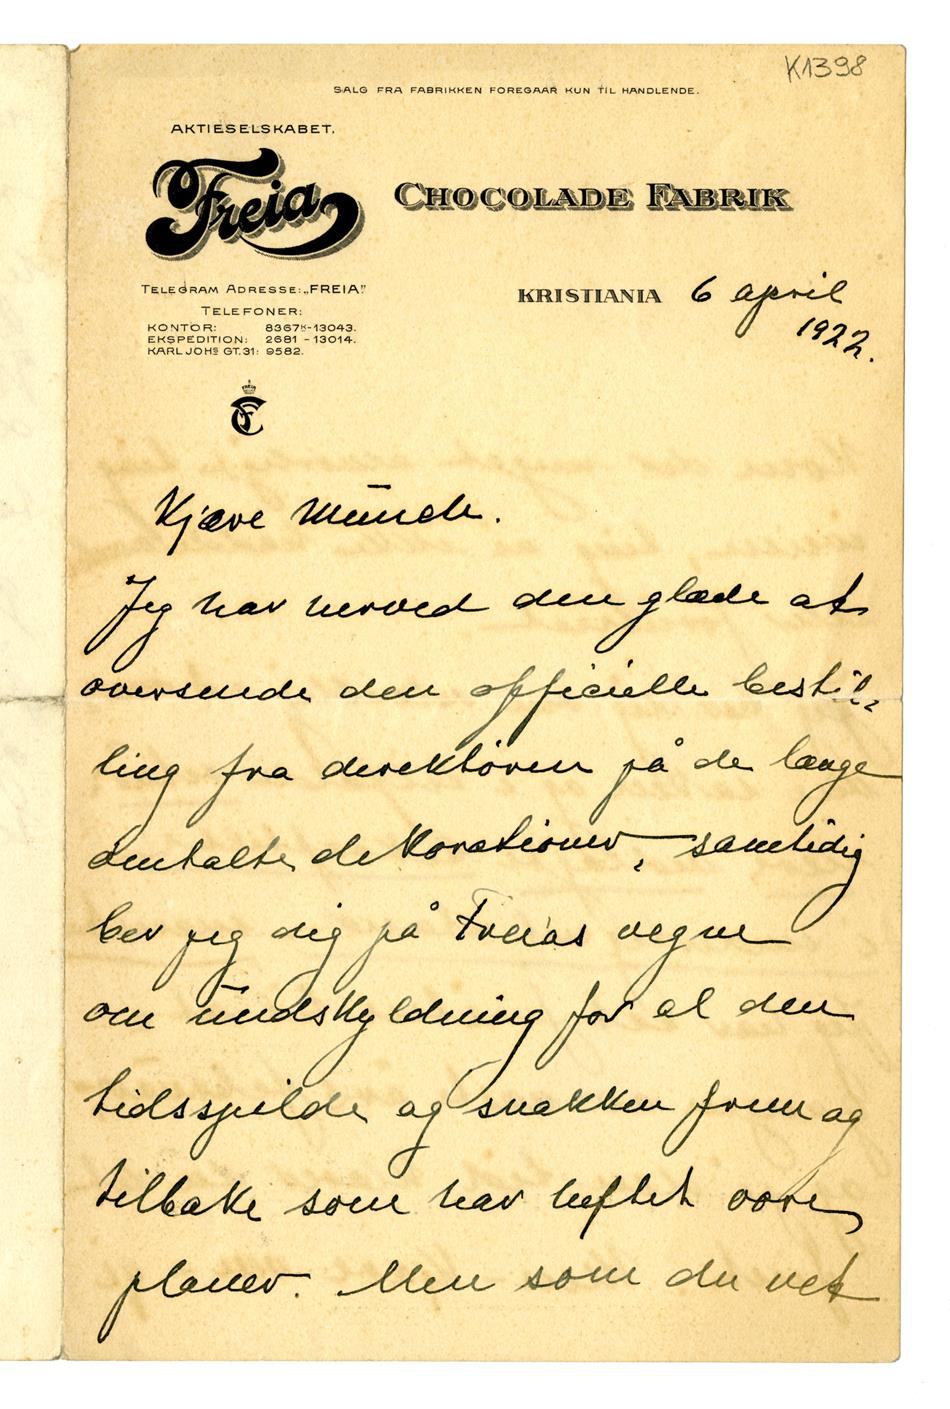 K1398
SALG FRA FABRIKKEN FOREGAAR KUN TIL HANDLENDE.
AKTIESELSKABET.
Freia CHOCOLADE FABRIK
TELEGRAM ADRESSE: „FREIA"
TELEFONER:
KONTOR: 8367ᴷ-13043.
EKSPEDITION: 2681 - 13014.
KARL JOHS GT. 31: 9582.
KRISTIANIA 6 april
1922.
Kjære Munch.
Jeg har herved den glæde at
oversende den officielle bestil-
ling fra direktören på de længe
omtalte dekorationer, samtidig
ber jeg dig på Freias vegne
om undskyldning for al den
tidsspilde og snakken frem og
tilbake som har heftet vore
planer. Men som du vet